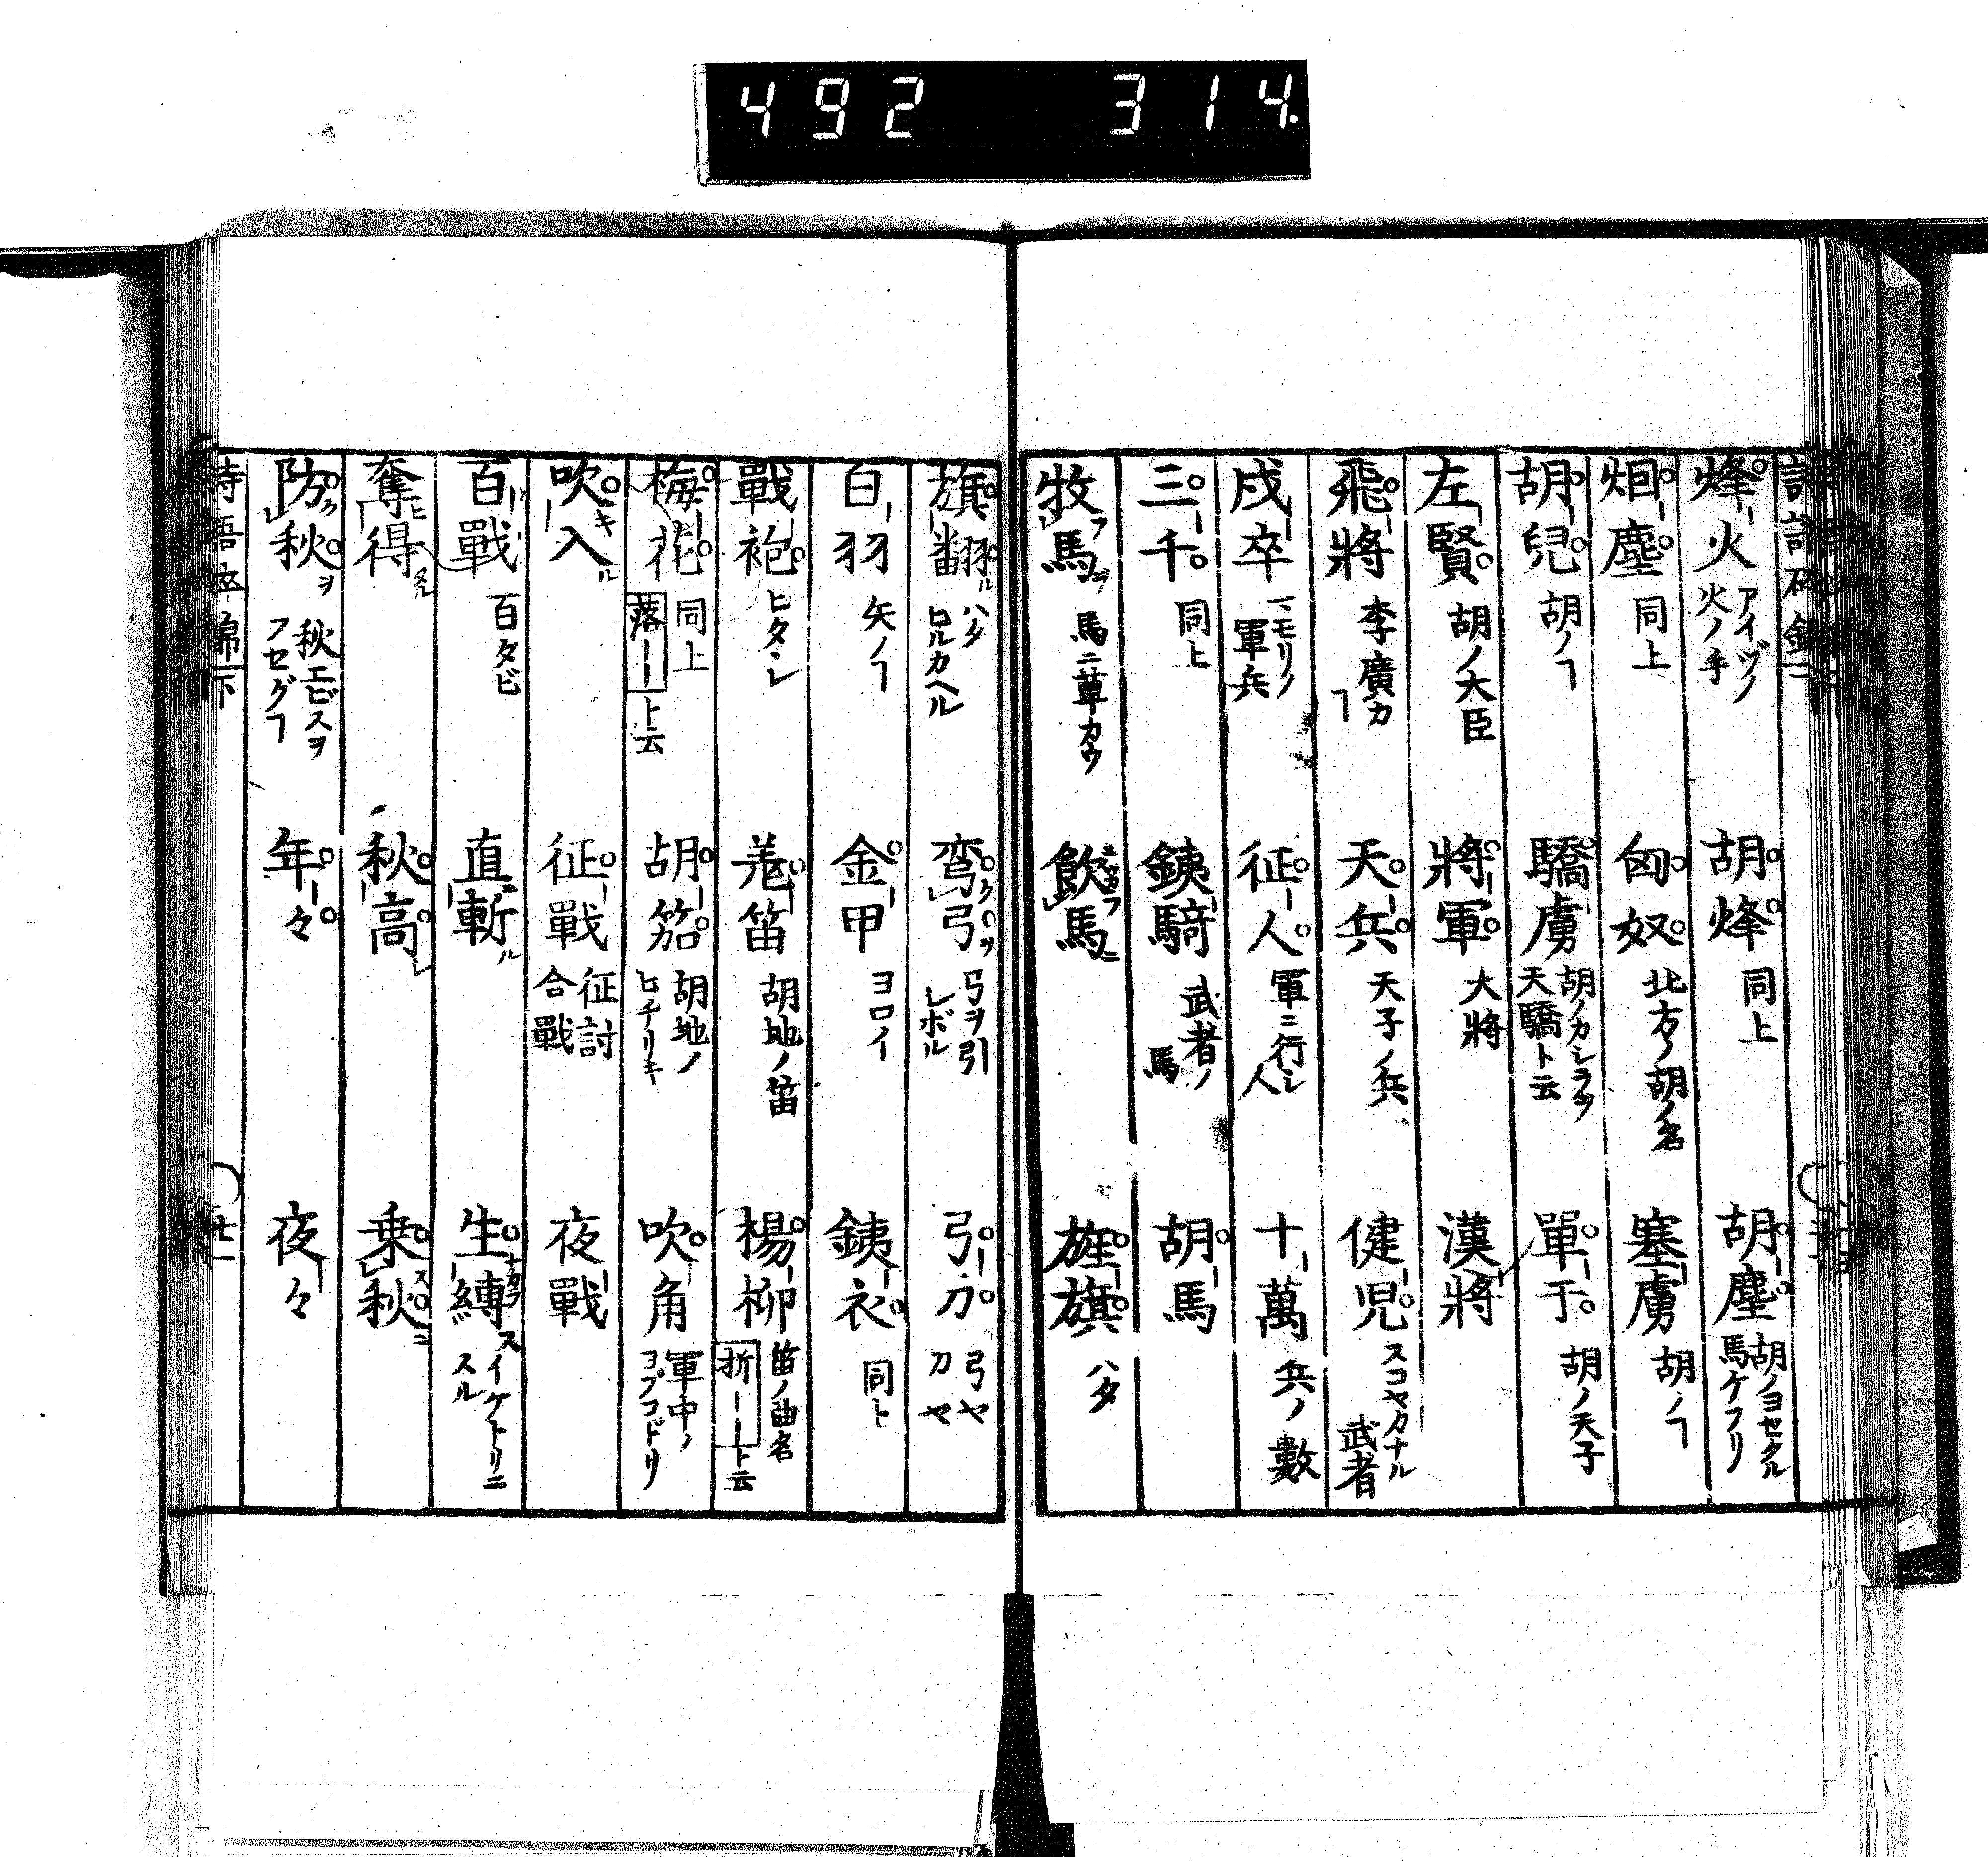 492 314.
烽火 アイヅノ火ノ手 胡烽 同上 胡塵 胡ノヨセクル馬ケフリ
烟塵 同上 匈奴 北方ノ胡ノ名 塞虜 胡ノヿ
胡兒 胡ノヿ 驕虜 胡ノカシラヲ天驕ト云 單于 胡ノ天子
左賢 胡ノ大臣 將軍 大將 漢將
飛將 李廣カヿ 天兵 天子ノ兵 健児 スコヤカナル武者
戍卒 マモリノ軍兵 征人 軍ニ行シ人 十萬 兵ノ數
三千 同上 銕騎 武者ノ馬 胡馬
牧馬 馬ニ草カウ 飲馬 旌旗 ハタ
旗翻 ハタヒルカヘル 弯弓 弓ヲ引シボル 弓刀 弓ヤカタナ
白羽 矢ノヿ 金甲 ヨロイ 銕衣 同上
戰袍 ヒタヽレ 羌笛 胡地ノ笛 楊柳 笛ノ曲名折――ト云
梅花 同上落――ト云 胡笳 胡地ノヒチリキ 吹角 軍中ノ
吹入 征戰 征討合戰 夜戰
百戰 百タビ 直斬 生縛 イケトリニスル
奪得 秋高 乗秋
防秋 秋エビスヲフセグヿ 年々 夜々
詩語砕錦 下